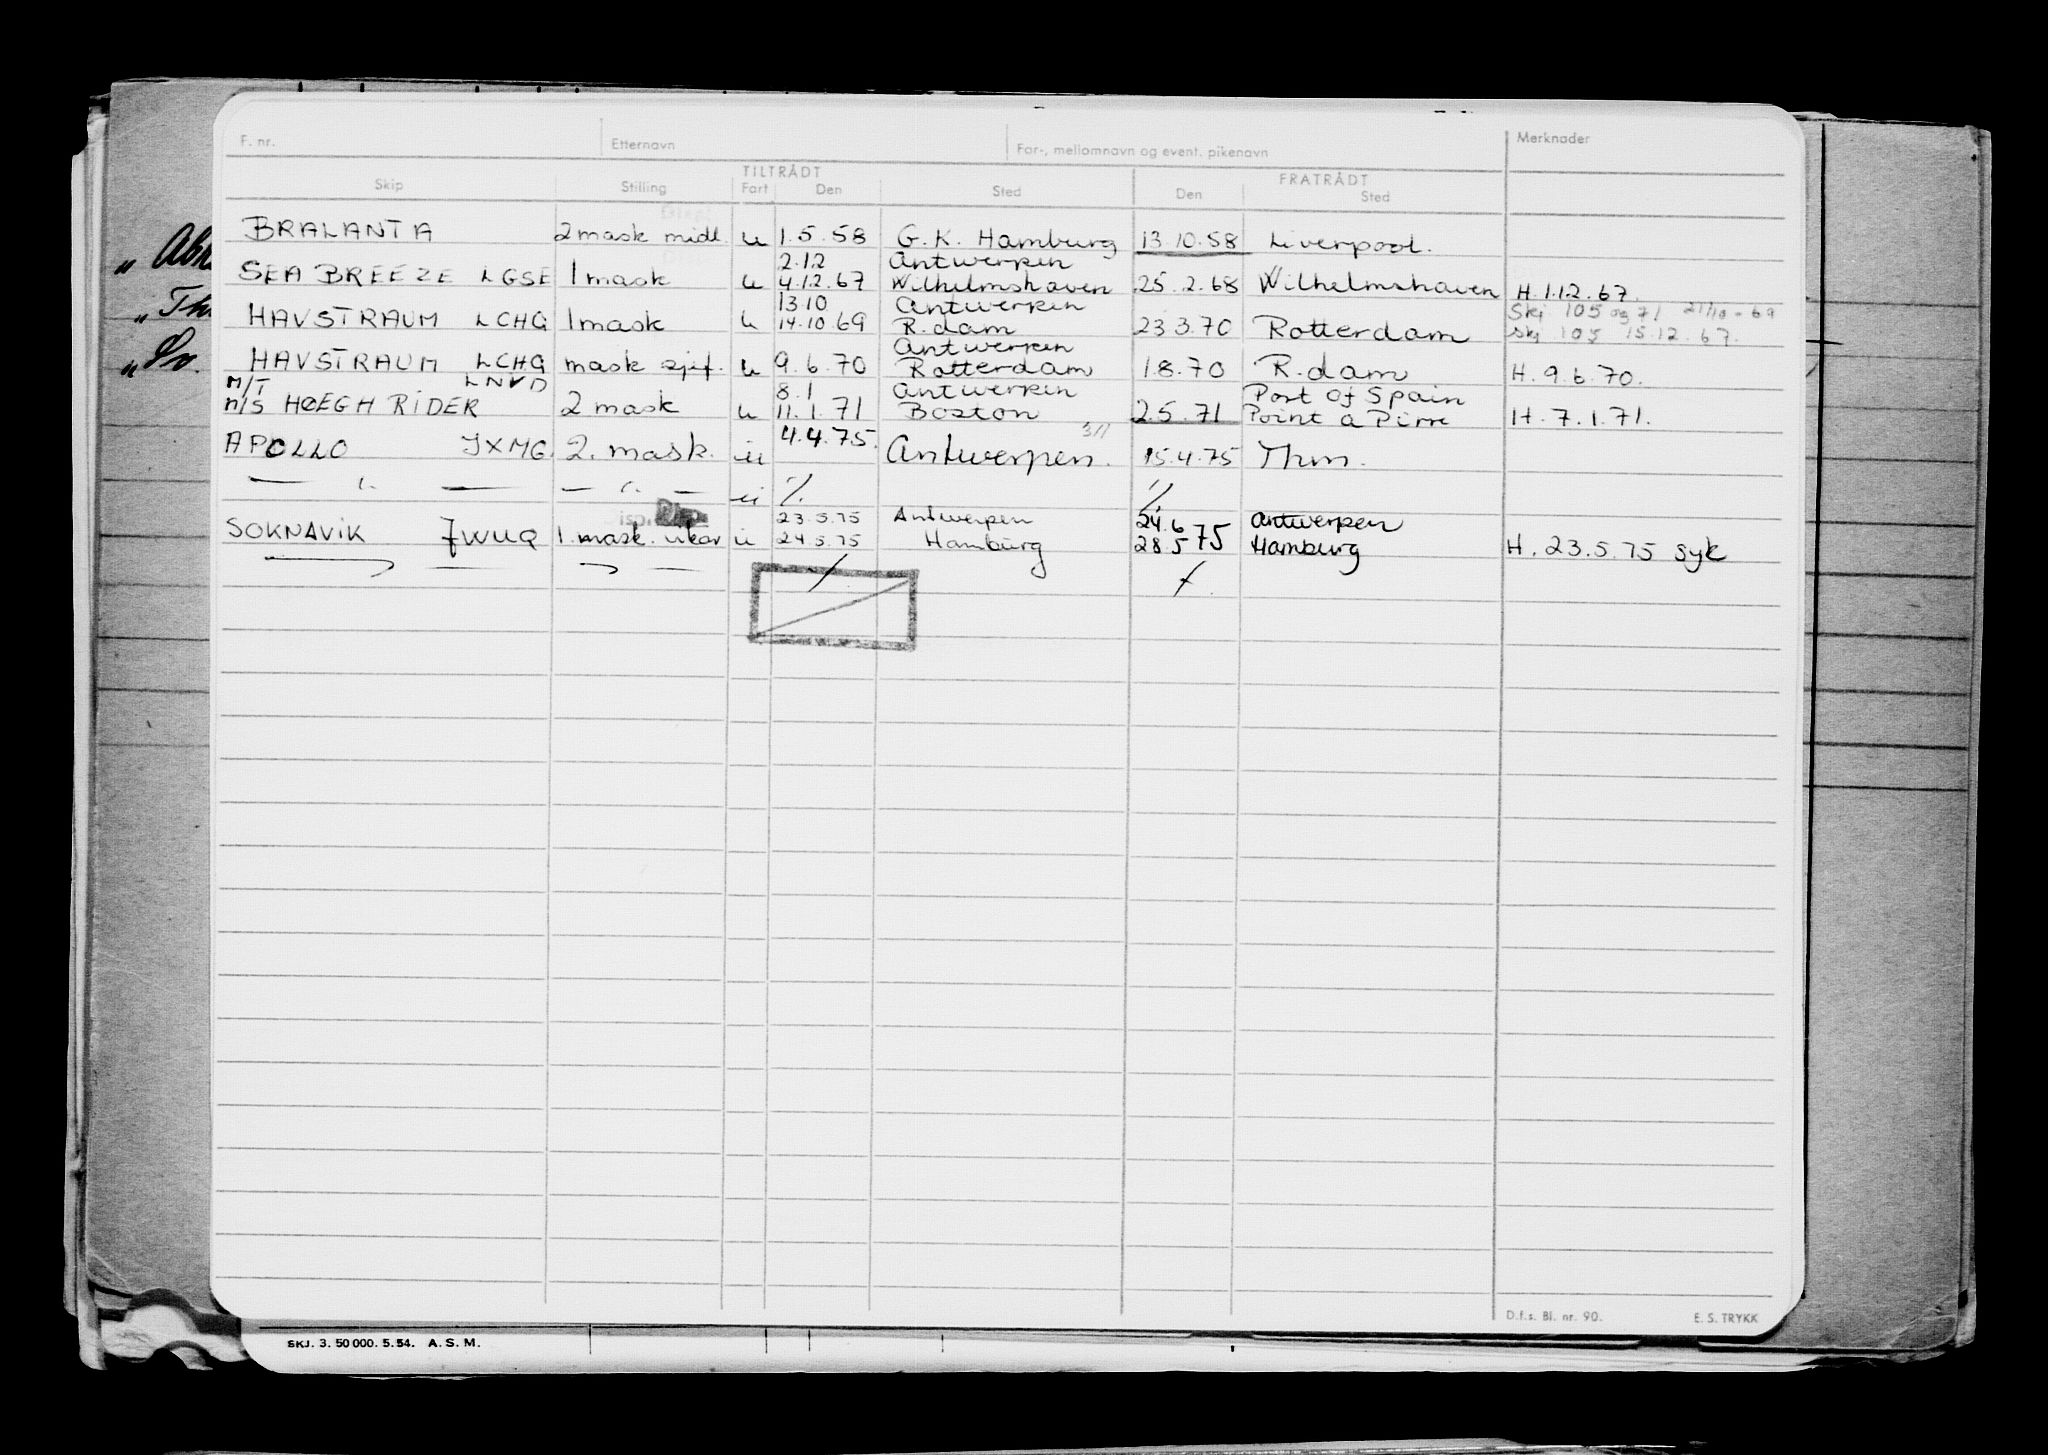 F. nr. Etternavn For-, mellomnavn og event. pikenavn Merknader
TILTRÅDT FRATRÅDT
Skip Stilling Fart Den Sted Den Sted
BRALANTA 2 mask midl. u 1.5.58 G.K. Hamburg 13.10.58 Liverpool.
2.12 Antwerpen
SEA BREEZE LGSE 1 mask u 4.12.67 Wilhelmshaven 25.2.68 Wilhelmshaven H. 1.12.67.
13.10 Antwerpen Skj 105 og 71 21/10-69
HAVSTRAUM LCHG 1 mask u 14.10.69 R.dam 23.3.70 Rotterdam skj 105 15.12.67.
Antwerpen
HAVSTRAUM LCHG mask sjef. u 9.6.70 Rotterdam 1.8.70 R.dam H. 9.6.70.
M/T LNVD 8.1 Antwerpen Port of Spain
M/S HØEGH RIDER 2 mask u 11.1.71 Boston 2.5.71 Point a Pirre H. 7.1.71.
APOLLO JXMG. 2. mask. u 4.4.75. Antwerpen. 15.4.75 Thm.
— " — — " — u ./. ./.
23.5.75 Antwerpen 24.6 Antwerpen
SOKNAVIK JWUQ 1. mask. vikar u 24.5.75 Hamburg 28.5 75 Hamburg H. 23.5.75 syk
D.f.s. Bl. nr. 90. E. S. TRYKK
SKJ. 3. 50 000. 5. 54. A. S. M.